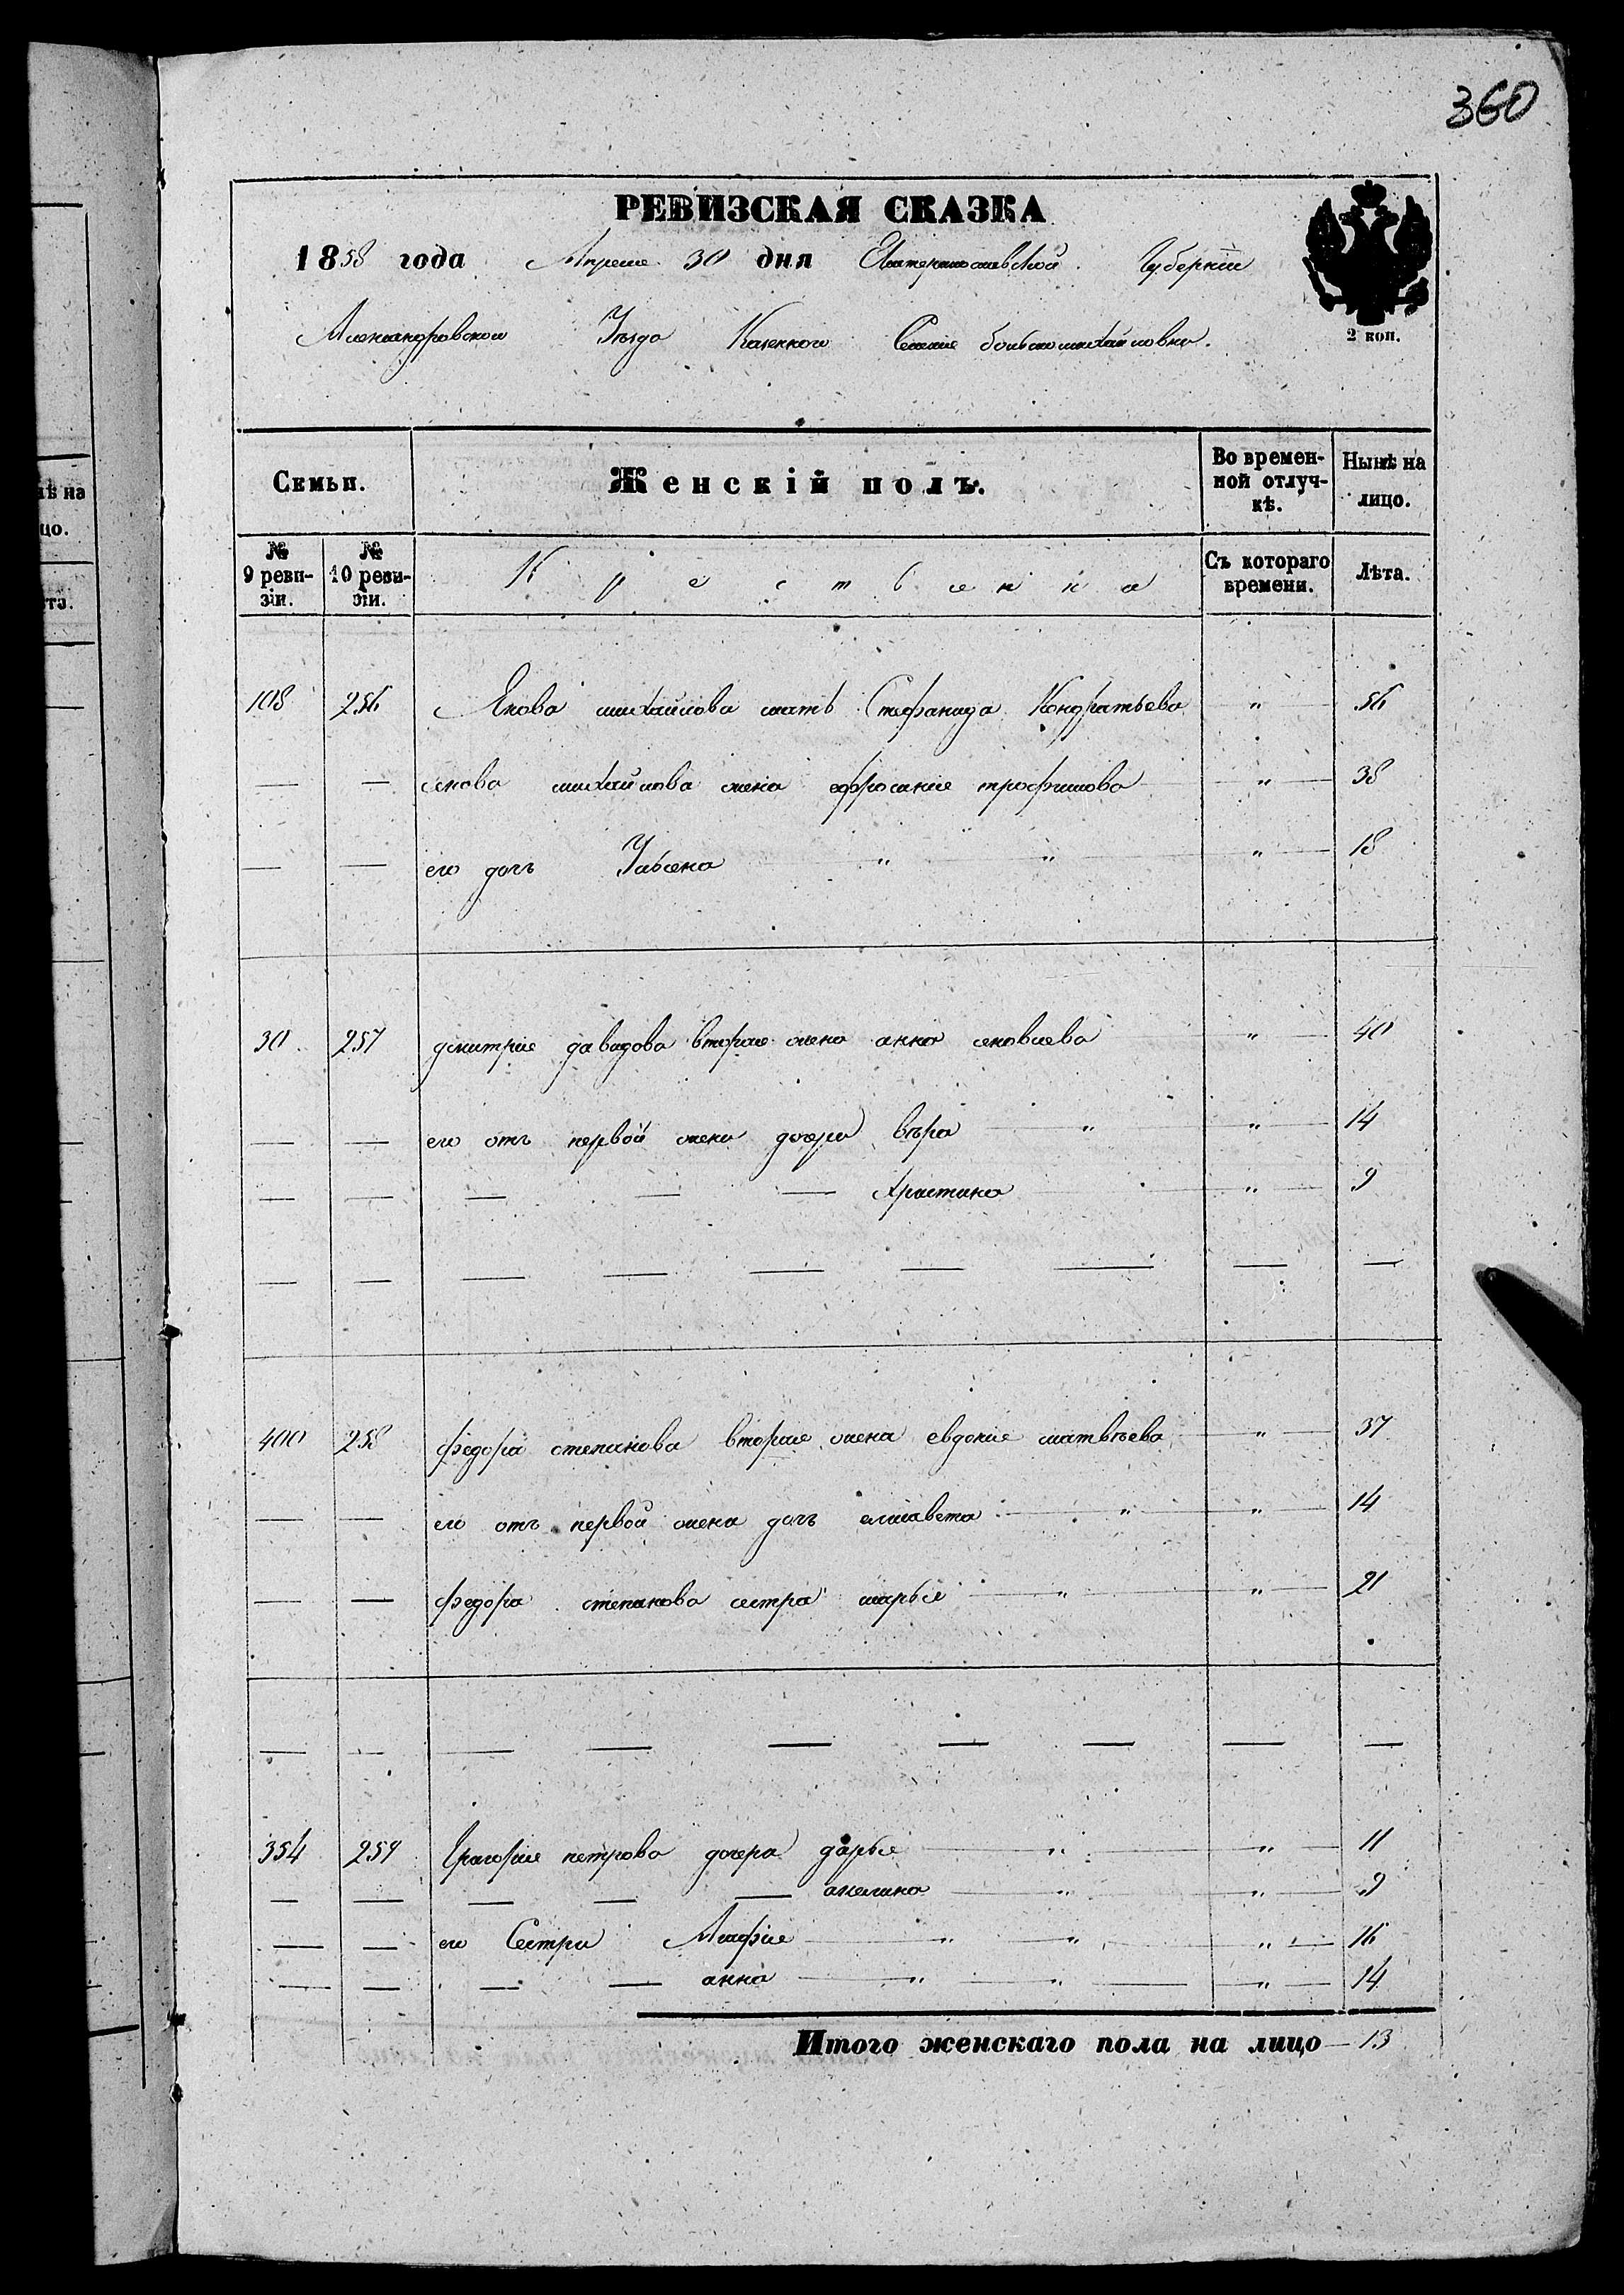 360
РЕВИЗСКАЯ СКАЗКА
1858 года Апреля 30 дня Екатеринославской Губернии
Александровского Уѣзда Казенного Селения большомихайловки.
2 коп.
Семьи. Женскій полъ. Во времен-ной отлуч-кѣ. Нынѣ на лицо.
№ 9 реви-зіи. № 10 реви-зіи. Крестьянки Съ котораго времени. Лѣта.
108 256 Якова михайлова мать Стефанида Кондратьева " 56
— — якова михайлова жена ефросиния трофимова " 38
— — его дочъ Ульяна " " " 18
30 257 дмитрия давидова вторая жена анна яковлева " 40
— — его отъ первой жены дочери вѣра " " 14
— — — — — христина " 9
— — — — — — — — —
400 258 федора степанова вторая жена евдокия матвѣева " 37
— — его отъ первой жены дочъ елисавета " " 14
— — федора степанова сестра марья " " 21
— — — — — — — — —
354 259 Григория петрова дочери дарья " " 11
— — — — — акелина " " 9
— — его Сестри Агафия " " " 16
— — — — анна " " " 14
Итого женскаго пола на лицо — 13
нѣ на
цо.
та.